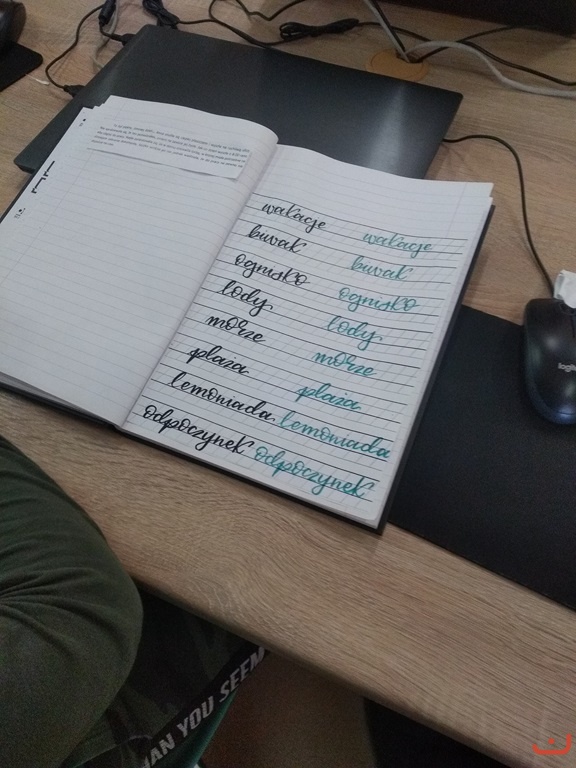 wakacje wakacje
buwak buwak
ognisko ognisko
lody lody
morze morze
plaża plaża
lemoniada lemoniada
odpoczynek odpoczynek
logi
HAN YOU SEEM